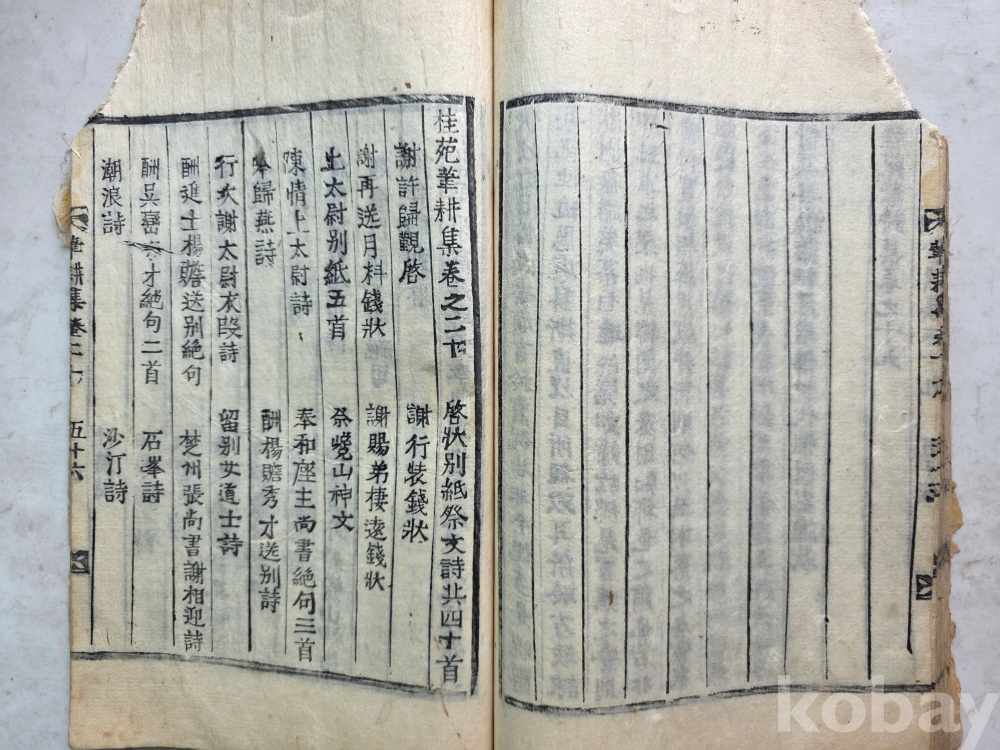 桂苑筆耕集卷之二十
啓狀別紙祭文詩共四十首
謝許歸覲啓
謝行裝錢狀
謝再送月料錢狀
謝賜弟棲遠錢狀
上太尉別紙五首
祭巉山神文
陳情上太尉詩
奉和座主尚書絶句三首
吟歸燕詩
酬楊贍秀才送別詩
行次謝太尉衣段詩
留別女道士詩
酬進士楊贍送別絶句
楚州張尚書謝相迎詩
酬吳巒秀才絶句二首
石峯詩
潮浪詩
沙汀詩
筆耕集卷二十
五十六
kobay